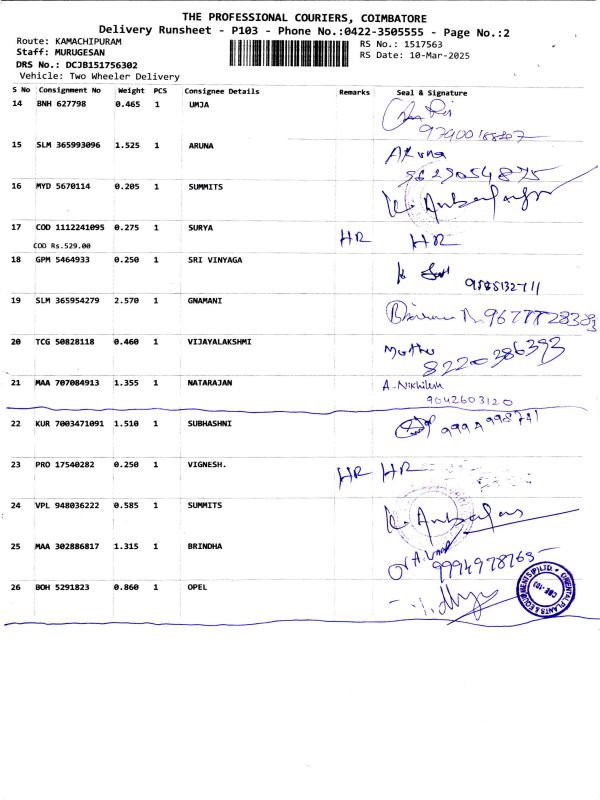 THE PROFESSIONAL COURIERS, COIMBATORE
Delivery Runsheet - P103 - Phone No.:0422-3505555 - Page No.:2
Route: KAMACHIPURAM
RS No.: 1517563
Staff: MURUGESAN
RS Date: 10-Mar-2025
DRS No.: DCJB151756302
Vehicle: Two Wheeler Delivery
S No Consignment No Weight PCS Consignee Details Remarks Seal & Signature
14 BNH 627798 0.465 1 UMJA
15 SLM 365993096 1.525 1 ARUNA Aruna
16 MYD 5670114 0.205 1 SUMMITS
17 COD 1112241095 0.275 1 SURYA HR HR
COD Rs.529.00
18 GPM 5464933 0.250 1 SRI VINYAGA
19 SLM 365954279 2.570 1 GNAMANI
20 TCG 50828118 0.460 1 VIJAYALAKSHMI Mother
8220386393
21 MAA 707084913 1.355 1 NATARAJAN A-Nikhilesh
9042603120
22 KUR 7003471091 1.510 1 SUBHASHNI
23 PRO 17540282 0.250 1 VIGNESH. HR HR
24 VPL 948036222 0.585 1 SUMMITS
25 MAA 302886817 1.315 1 BRINDHA
9994978765
26 BOH 5291823 0.860 1 OPEL
ORIENTAL PLANTS & EQUIPMENTS (P) LTD.
CBE-103